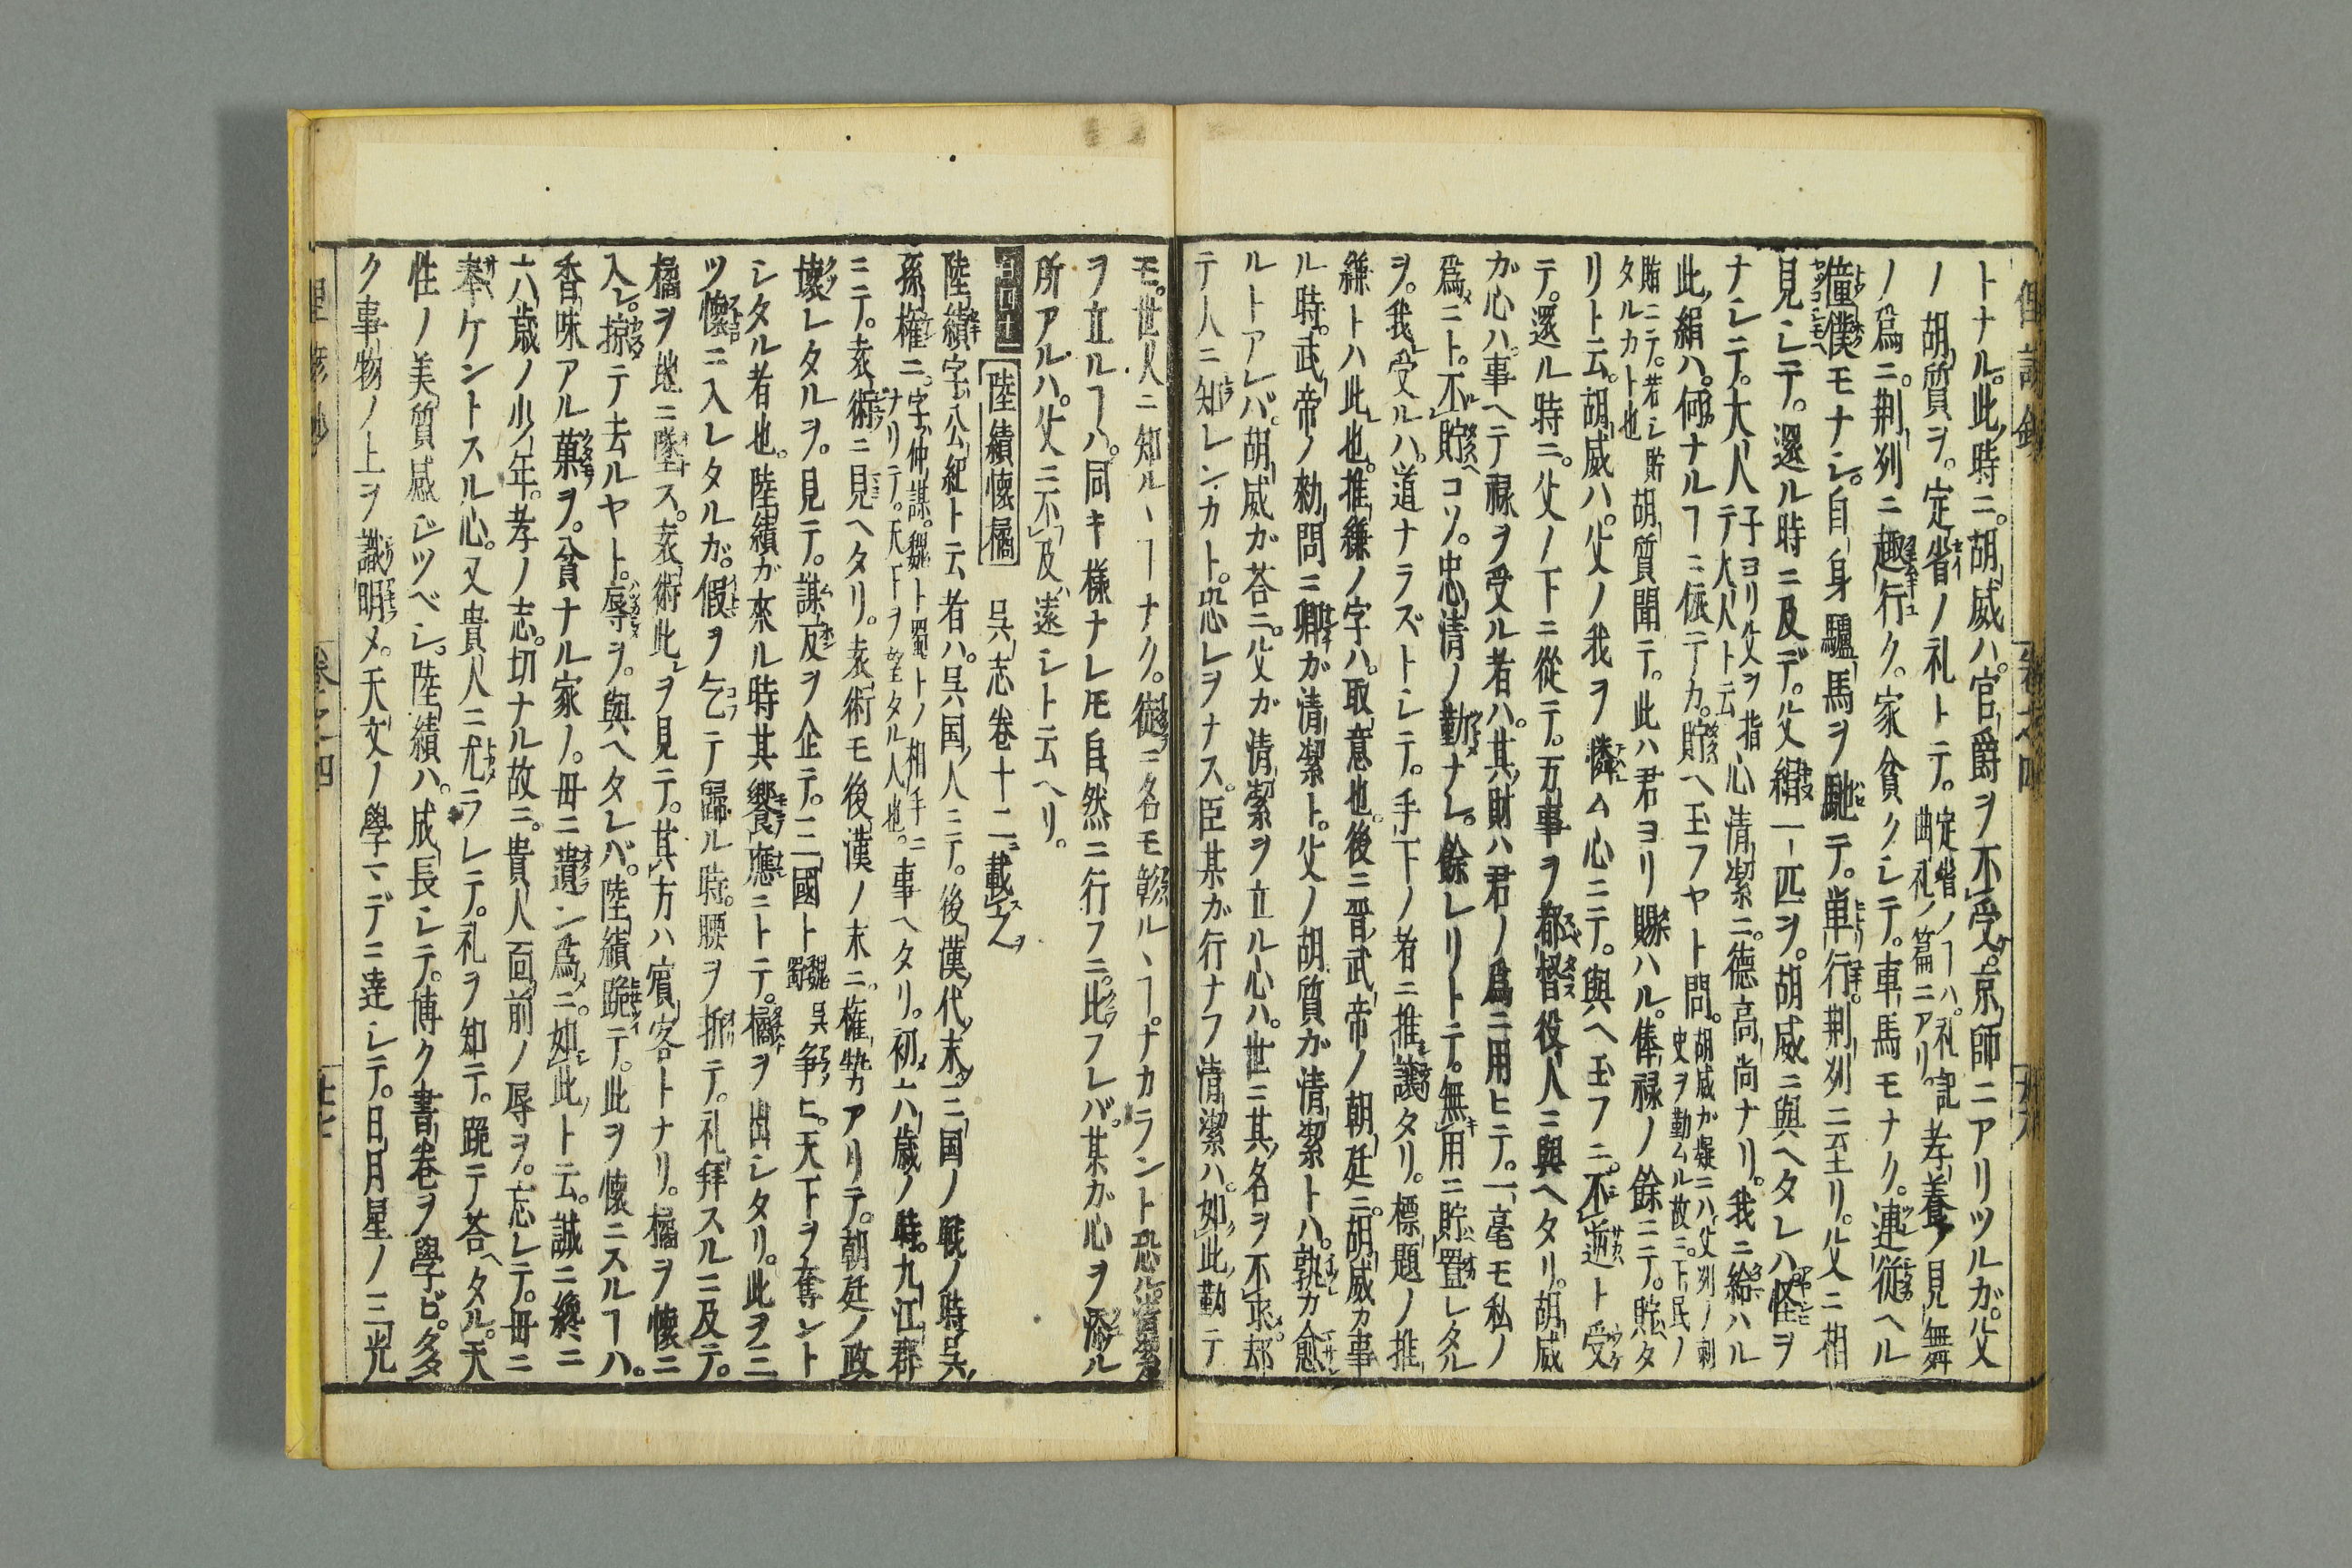 トナル。此時ニ。胡威ハ。官爵ヲ不受。京師ニアリツルガ。父
ノ胡質ヲ。定省ノ礼トテ。定省ノヿハ。礼記曲礼ノ篇ニアリ。孝養ノ見舞
ノ爲ニ。荆刕ニ趣行ク。家貧クシテ。車馬モナク。連從ヘル
僮僕モナシ。自身驢馬ヲ馳テ。単行。荆刕ニ至リ。父ニ相
見シテ。還ル時ニ及デ。父絹一匹ヲ。胡威ニ與ヘタレハ怪ヲ
ナシテ。大人子ヨリ父ヲ指テ大人ト云心清潔ニ。德高尚ナリ。我ニ給ハル
此絹ハ。何ナルヿニ依テカ。貯ヘ玉フヤト問。胡威カ疑ニハ父刕ノ刺史ヲ勤ムル故ニ。下民ノ
賄ニテ。若シ貯タルカト也胡質聞テ。此ハ君ヨリ賜ハル。俸禄ノ餘ニテ。貯タ
リト云。胡威ハ。父ノ我ヲ憐ム心ニテ。與ヘ玉フニ。不逆ト受
テ。還ル時ニ。父ノ下ニ從テ。万事ヲ都督役人ニ與ヘタリ。胡威
ガ心ハ。事ヘテ禄ヲ受ル者ハ。其財ハ君ノ爲ニ用ヒテ。一毫モ私ノ
爲ニト。不貯コソ。忠清ノ勤ナレ。餘レリトテ。無用ニ貯置レタル
ヲ。我受ルハ。道ナラズトシテ。手下ノ者ニ推讓タリ。標題ノ推
縑トハ此也。推縑ノ字ハ。取意也。後ニ晋武帝ノ朝廷ニ。胡威カ事
ル時。武帝ノ勅問ニ卿ガ清潔ト。父ノ胡質ガ清潔トハ。孰カ愈
ルトアレバ。胡威ガ荅ニ。父ガ清潔ヲ立ル心ハ。世ニ其名ヲ不求。却
テ人ニ知レンカト。恐レヲナス。臣某ガ行ナフ清潔ハ。如此勤テ
モ。世人ニ知ルヽヿナク。徒ニ名モ彰ルヽヿ。ナカラント恐
ヲ立ルヿハ。同キ様ナレ𪜈自然ニ行フニ。此フレバ。某ガ心ヲ添ル
所アルハ。父ニ不及遠シト云ヘリ。
陸績懷橘 呉志卷十二載之
陸績字公紀ト云者ハ。呉国人ニテ。後漢代末。三国ノ戰ノ時呉
孫權ニ。字仲謀。魏ト蜀トノ相手ニナリテ。天下ヲ望タル人也。事ヘタリ。初六歳ノ時。九江群
ニテ。袁術ニ見ヘタリ。袁術モ後漢ノ末ニ權勢アリテ。朝廷ノ政
壞レタルヲ。見テ。謀反ヲ企テ。三國ト魏蜀呉争ヒ。天下ヲ奪ント
シタル者也。陸績ガ來ル時其饗應ニトテ。橘ヲ出シタリ。此ヲ三
ツ懷ニ入レタルガ。假ヲ乞テ歸ル時。腰ヲ折テ。礼拜スルニ及テ。
橘ヲ地ニ墜ス。袁術此ヲ見テ。其方ハ賓客トナリ。橘ヲ懷ニ
入レ。掠テ去ルヤト。辱ヲ。與ヘタレバ。陸績跪テ。此ヲ懷ニスルヿハ。
香味アル菓ヲ。貧ナル家ノ。毋ニ遺ン爲ニ。如此ト云。誠ニ纔ニ
六歳ノ少年。孝ノ志。切ナル故ニ。貴人面前ノ辱ヲ。忘レテ。毋ニ
奉ケントスル心。又貴人ニ尤ラレテ。礼ヲ知テ。跪テ荅ヘタル。天
性ノ美質感ジツベシ。陸績ハ。成長シテ。博ク書卷ヲ學ビ。多
ク事物ノ上ヲ識明メ。天文ノ學マデニ達シテ。日月星ノ三光
卷之四